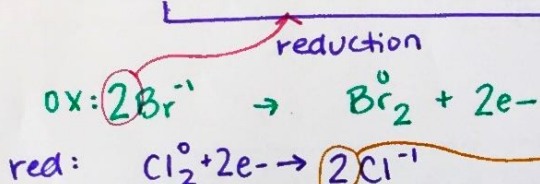 reduction
ox: 2Br⁻¹ → Br₂⁰ + 2e-
red: Cl₂⁰ + 2e- → 2Cl⁻¹